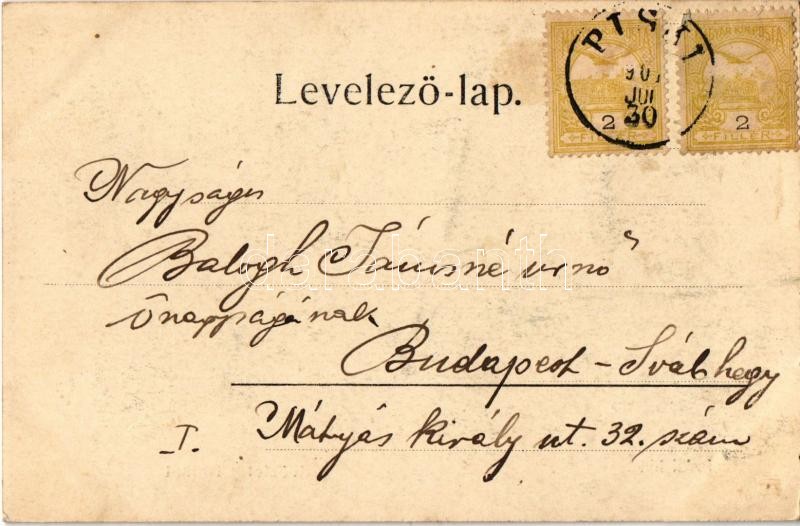 2 FILLÉR
2 FILLÉR
901 JUL 30
Levelező-lap.
Nagyságos
Balogh Jánosné urnő
Őnagyságának
Budapest-Svábhegy
I. Mátyás király ut. 32. szám
darabanth